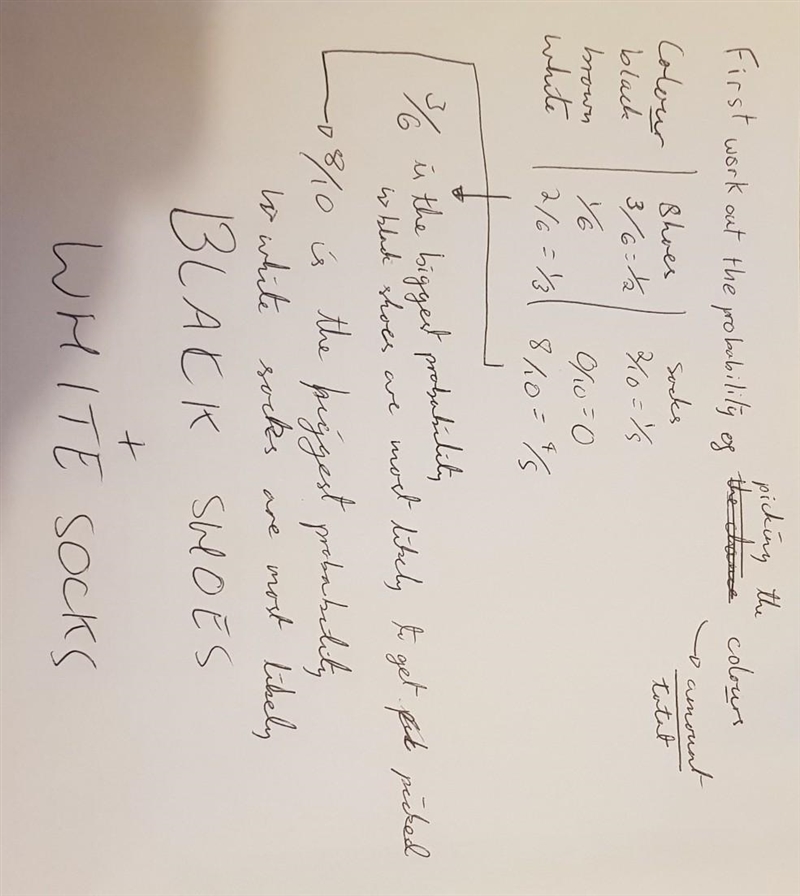 First work out the probability of the chance picking the colours
→ amount
total
Colour | Shoes | Socks
black 3/6 = 1/2 2/10 = 1/5
brown 1/6 0/10 = 0
white 2/6 = 1/3 8/10 = 4/5
3/6 is the biggest probability
so black shoes are most likely to get picked
→ 8/10 is the biggest probability
so white socks are most likely
BLACK SHOES
+
WHITE SOCKS